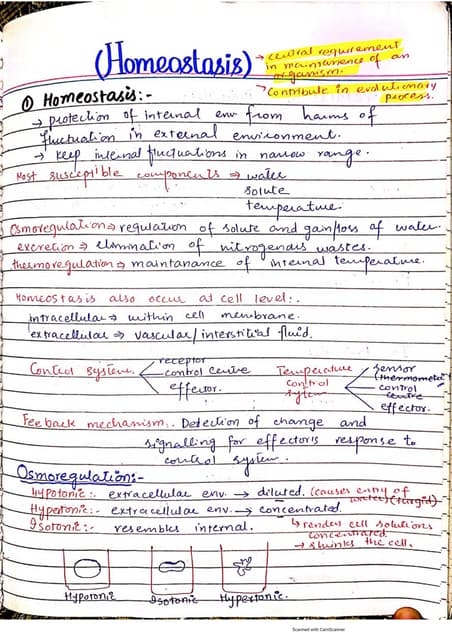 (Homeostasis)
→ central requirement
in maintenance of an
organism.
→ Contribute in evolutionary
process.
① Homeostasis:-
→ protection of internal env from harms of
fluctuation in external environment.
→ keep internal fluctuations in narrow range.
Most susceptible components ⇒ water
solute
temperature.
Osmoregulation ⇒ regulation of solute and gain/loss of water.
excretion ⇒ elimination of nitrogenous wastes.
thermoregulation ⇒ maintanance of internal temperature.
Homeostasis also occur at cell level:.
intracellular ⇒ within cell membrane.
extracellular ⇒ vascular/interstitial fluid.
Control system.
receptor
control centre
effector.
Temperature
control
system
sensor
(thermometer
control
centre
effector.
Feeback mechanism:. Detection of change and
signalling for effector's response to
control system.
Osmoregulation:-
Hypotonic:- extracellular env. → diluted. (causes entry of
water) (turgid)
Hypertonic:- extracellular env → concentrated.
Isotonic:- resembles internal.
↳ renders cell solutions
concentrated
→ shrinks the cell.
Hypotonic
Isotonic
Hypertonic.
Scanned with CamScanner